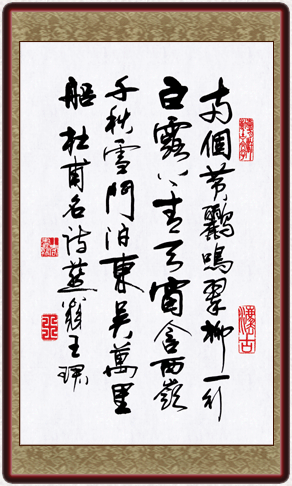 兩個黃鸝鳴翠柳一行
白露上青天窗含西嶺
千秋雪門泊東吳萬里
船 杜甫名詩 王